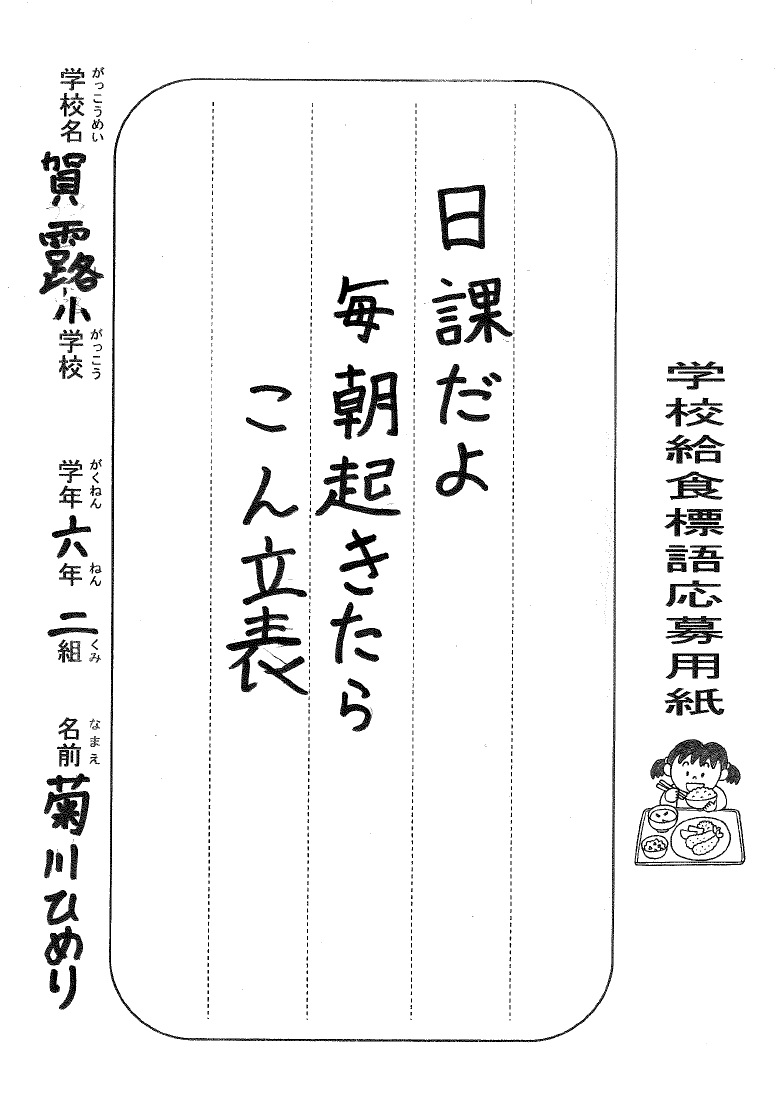 学校給食標語応募用紙
日課だよ
毎朝起きたら
こん立表
がっこうめい がっこう がくねん ねん くみ なまえ
学校名 賀露小学校 学年 六年 二組 名前 菊川ひめり